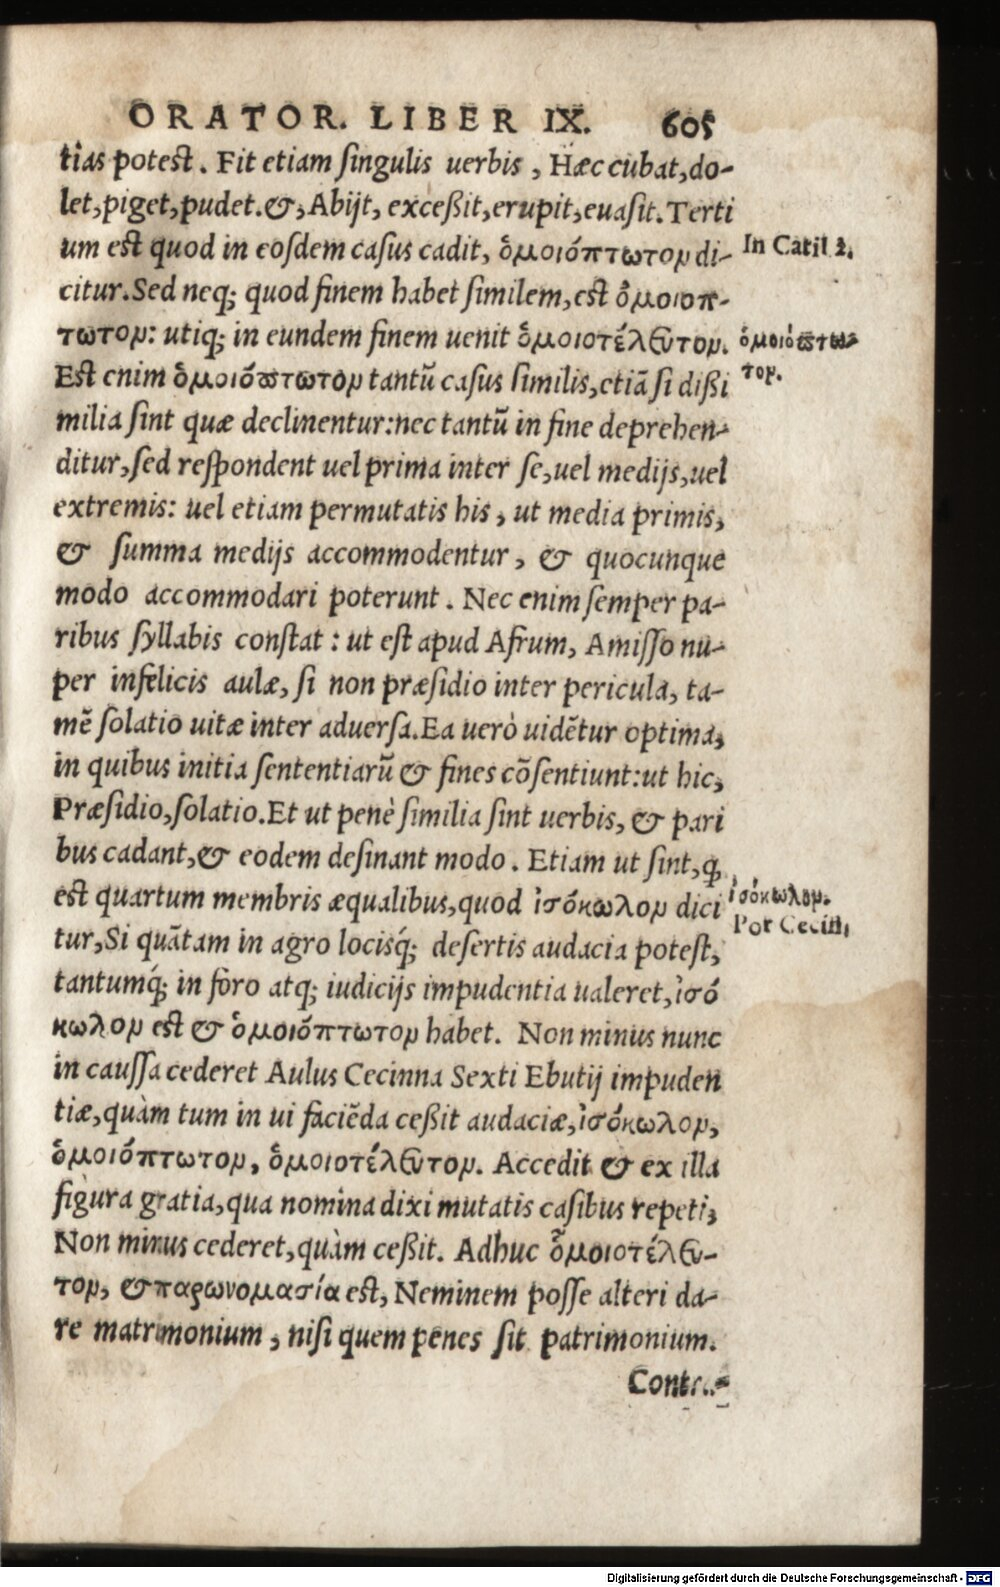 ORATOR. LIBER IX. 605
tias potest. Fit etiam singulis uerbis, Hæc cubat, do-
let, piget, pudet. &, Abijt, exceßit, erupit, euasit. Terti
um est quod in eosdem casus cadit, ὁμοιόπτωτον di-
In Catil. 2.
citur. Sed neq; quod finem habet similem, est ὁμοιοπ-
τωτον: utiq; in eundem finem uenit ὁμοιοτέλευτον.
ὁμοιόπτω-
Est enim ὁμοιόπτωτον tantũ casus similis, etiã si dißi
τον.
milia sint quæ declinentur: nec tantũ in fine deprehen-
ditur, sed respondent uel prima inter se, uel medijs, uel
extremis: uel etiam permutatis his, ut media primis,
& summa medijs accommodentur, & quocunque
modo accommodari poterunt. Nec enim semper pa-
ribus syllabis constat: ut est apud Afrum, Amisso nu-
per infelicis aulæ, si non præsidio inter pericula, ta-
mẽ solatio uitæ inter aduersa. Ea uerò uidẽtur optima,
in quibus initia sententiarũ & fines cõsentiunt: ut hic,
Præsidio, solatio. Et ut penè similia sint uerbis, & pari
bus cadant, & eodem desinant modo. Etiam ut sint, ꝙ
est quartum membris æqualibus, quod ἰσόκωλον dici
ἰσόκωλον.
Por Cecin,
tur, Si quãtam in agro locisq́; desertis audacia potest,
tantumq́; in foro atq; iudicijs impudentia ualeret, ἰσό
κωλον est & ὁμοιόπτωτον habet. Non minus nunc
in caussa cederet Aulus Cecinna Sexti Ebutij impuden
tiæ, quàm tum in ui faciẽda ceßit audaciæ, ἰσόκωλον,
ὁμοιόπτωτον, ὁμοιοτέλευτον. Accedit & ex illa
figura gratia, qua nomina dixi mutatis casibus repeti,
Non minus cederet, quàm ceßit. Adhuc ὁμοιοτέλευ-
τον, & παρωνομασία est, Neminem posse alteri da-
re matrimonium, nisi quem penes sit patrimonium.
Digitalisierung gefördert durch die Deutsche Forschungsgemeinschaft - DFG